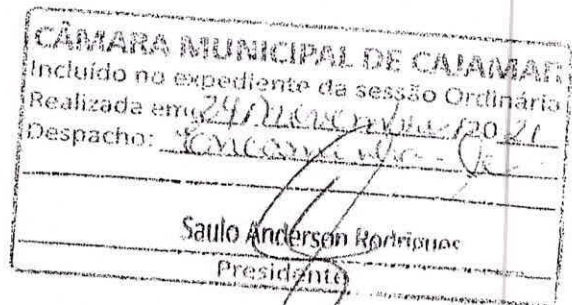 CÂMARA MUNICIPAL DE CAJAMAR
Incluído no expediente da sessão Ordinária
Realizada em 24/novembro/20 21
Despacho: Encaminhe-se
Saulo Anderson Rodrigues
Presidente